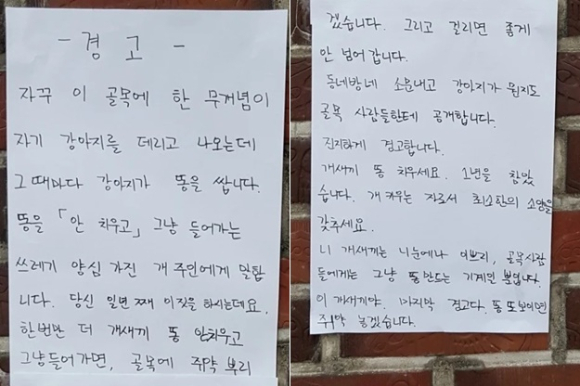 - 경 고 -
자꾸 이 골목에 한 무개념이
자기 강아지를 데리고 나오는데
그때마다 강아지가 똥을 쌉니다.
똥을 「안 치우고」 그냥 들어가는
쓰레기 양심 가진 개 주인에게 말합
니다. 당신 일년 째 이짓을 하시는데요.
한번만 더 개새끼 똥 안치우고
그냥들어가면, 골목에 쥐약 뿌리
겠습니다. 그리고 걸리면 좋게
안 넘어 갑니다.
동네방네 소문내고 강아지가 뭔지도
골목 사람들한테 공개합니다.
진지하게 경고합니다.
개새끼 똥 치우세요. 1년을 참았
습니다. 개 키우는 자로서 최소한의 소양을
갖추세요.
니 개새끼는 니 눈에나 이쁘지, 골목사람
들에게는 그냥 똥 만드는 기계일 뿐입니다.
이 개새끼야. 마지막 경고다. 똥 또 보이면
쥐약 놓겠습니다.